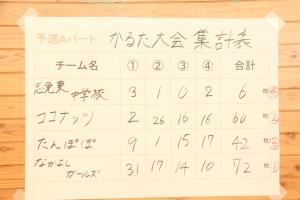 予選Aパート かるた大会 集計表
チーム名 ① ② ③ ④ 合計
志免東中学校 3 1 0 2 6枚 ④
ココナッツ 2 26 16 16 60枚 ②
たんぽぽ 9 1 15 17 42枚 ③
なかよしガールズ 31 17 14 10 72枚 ①